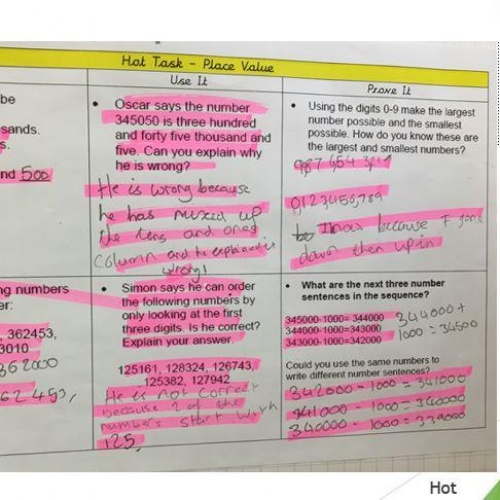 Hot Task - Place Value
Use It
Prove It
be
sands.
s.
nd 500
• Oscar says the number
345050 is three hundred
and forty five thousand and
five. Can you explain why
he is wrong?
He is wrong because
he has mixed up
the tens and ones
column and he explained it
wrong!
• Using the digits 0-9 make the largest
number possible and the smallest
possible. How do you know these are
the largest and smallest numbers?
0,123456,789
because I gone
down then up in
ng numbers
er:
, 362453,
3010
362000
62453,
• Simon says he can order
the following numbers by
only looking at the first
three digits. Is he correct?
Explain your answer.
125161, 128324, 126743,
125382, 127942
He is not correct
because 2 of the
numbers start with
125,
• What are the next three number
sentences in the sequence?
345000-1000= 344000
344000-1000=343000
343000-1000=342000
344000+
1000 = 34500
Could you use the same numbers to
write different number sentences?
342000 - 1000 = 341000
341000 - 1000 = 340000
340000 - 1000 = 339000
Hot